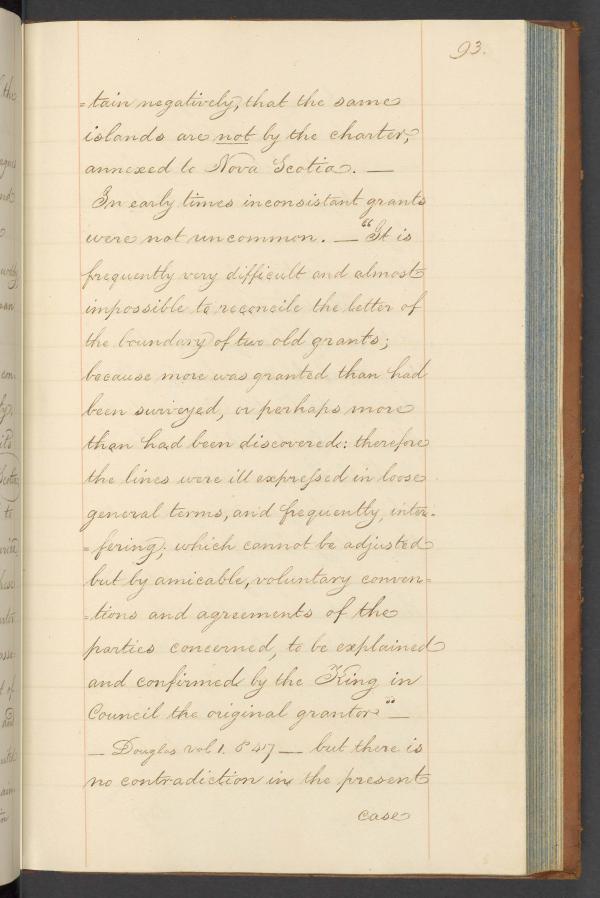 93.
=tain negatively, that the same
islands are not by the charter,
annexed to Nova Scotia. —
In early times inconsistant grants
were not uncommon. — "It is
frequently very difficult and almost
impossible to reconcile the letter of
the boundary of two old grants;
because more was granted than had
been surveyed, or perhaps more
than had been discovered: therefore
the lines were ill expressed in loose
general terms, and frequently, inter-
=fering; which cannot be adjusted
but by amicable, voluntary conven=
=tions and agreements of the
parties concerned, to be explained
and confirmed by the King in
Council the original grantor" —
— Douglas vol 1. P 417 — but there is
no contradiction in the present
case